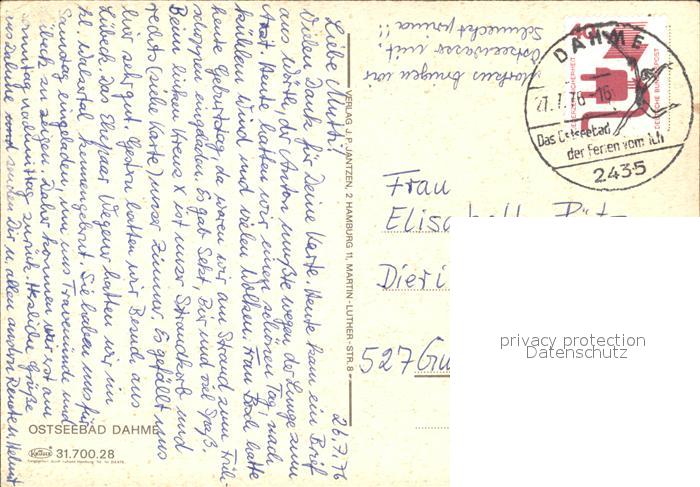 26.7.76
Liebe Mutti!
Vielen Dank für Deine Karte. Heute kam ein Brief
aus Wörle, dir Anton mußte wegen der Lunge zum
Arzt. Heute hatten wir einen schönen Tag, nach
kühlem Wind und vielen Wolken. Frau Bock hatte
heute Geburtstag, da waren wir am Strand zum Früh-
schoppen eingeladen. Es gab Sekt, Bier und viel Spaß.
Beim linken Kreuz X ist unser Strandkorb und
rechts (siehe Karte) unser Zimmer. Es gefällt uns
hier sehr gut. Gestern hatten wir Besuch aus
Lübeck. Das Ehepaar Wegener hatten wir in
kennengelernt. Sie haben uns für
Samstag eingeladen, um uns Travemünde und
Lübeck zu zeigen. Daher kommen wir erst am
Sonntag nachmittag zurück. Herzliche Grüße
senden Dir u. allen Helmut
Markus bringen wir
Ostseewasser mit.
Schmeckt prima!!
VERLAG J.P. JANTZEN, 2 HAMBURG 11, MARTIN-LUTHER-STR. 8
DEUTSCHE BUNDESPOST
DAHME
27.7.76-16
Das Ostseebad
der Ferien vom Ich
2435
Frau
Dieri
527 Gu
privacy protection
Datenschutz
OSTSEEBAD DAHME
31.700.28